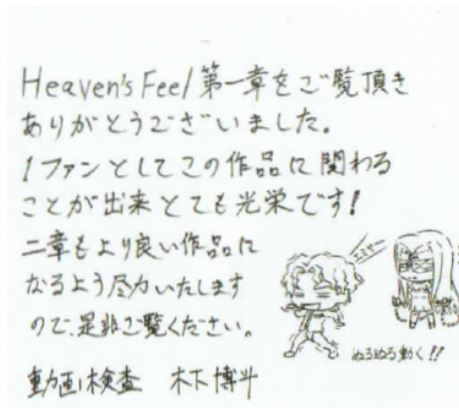 Heaven's Feel 第一章をご覧頂き
ありがとうございました。
1ファンとしてこの作品に関わる
ことが出来とても光栄です!
二章もより良い作品に
なるよう尽力いたします
ので、是非ご覧ください。
ぬるぬる動く!!
動画検査 木下博斗